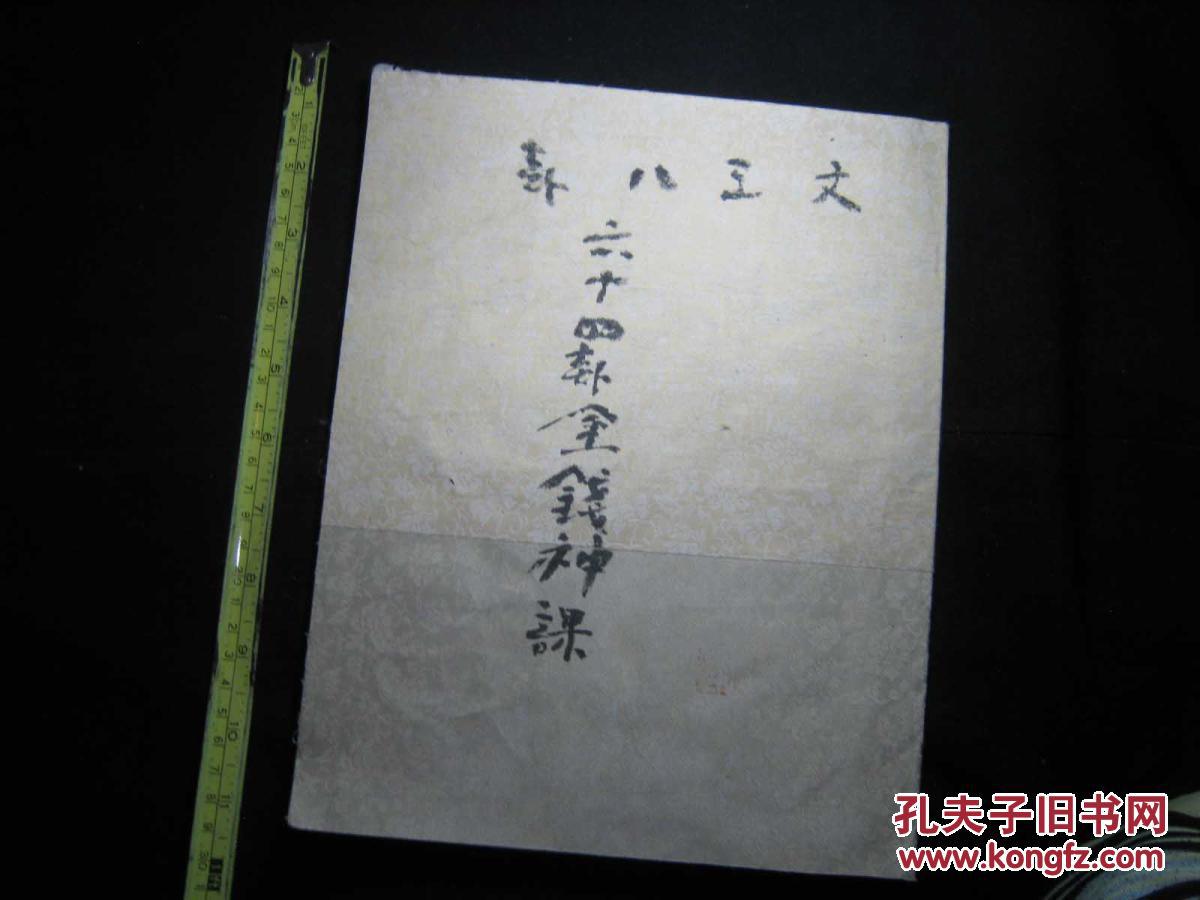 文王八卦
六十四卦金錢神課
孔夫子旧书网
www.kongfz.com